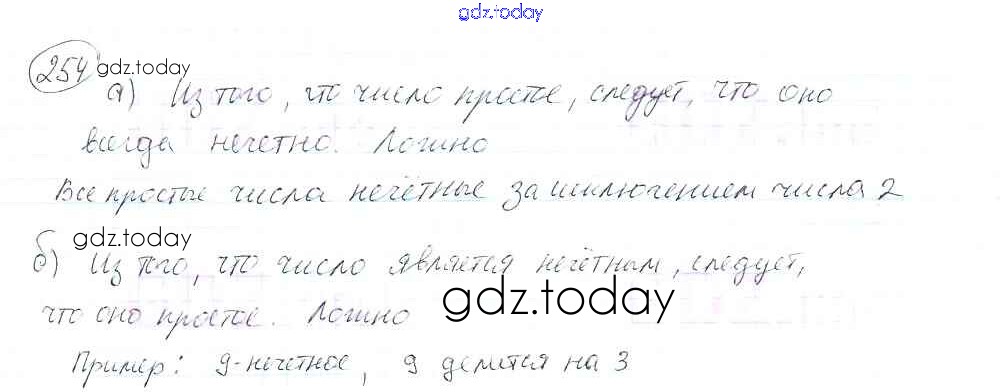 gdz.today
254 gdz.today
а) Из того, что число простое, следует, что оно
всегда нечетно. Ложно
Все простые числа нечётные за исключением числа 2
gdz.today
б) Из того, что число является нечётным, следует,
что оно простое. Ложно
gdz.today
Пример: 9-нечетное, 9 делится на 3